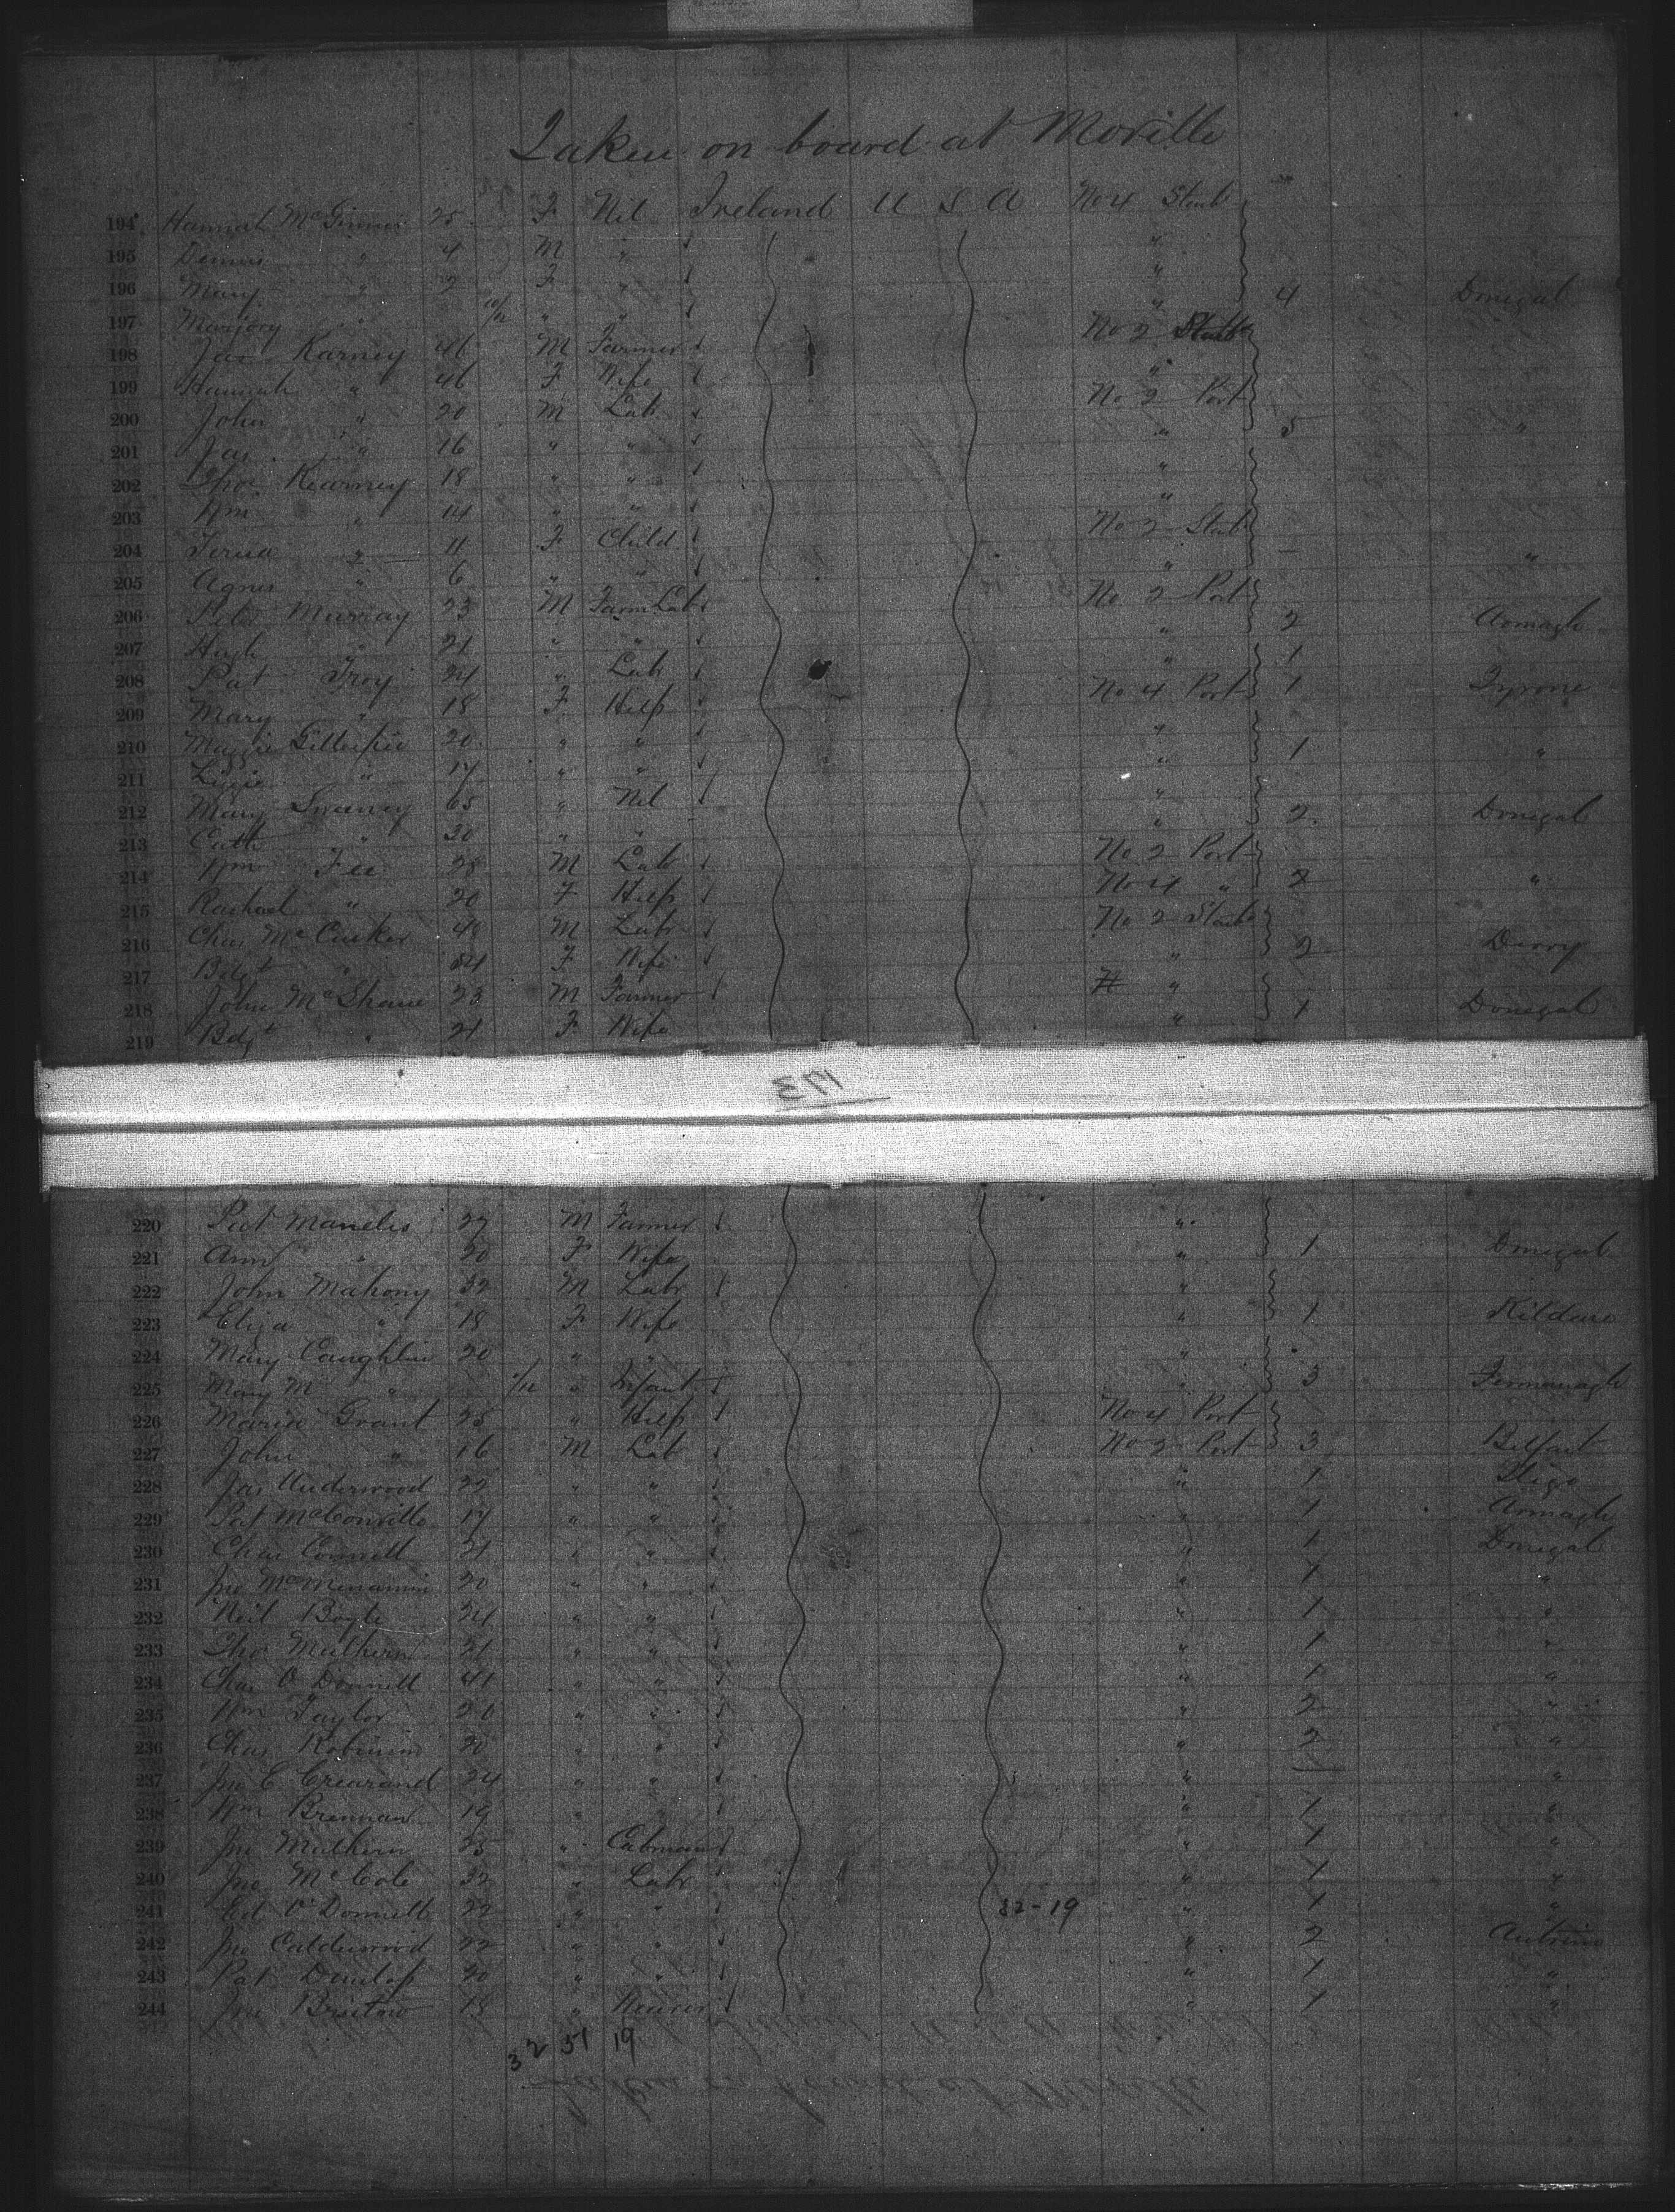 Taken on board at Moville
194 Hannah McGinnis 25 F Nil Ireland U S A No 4 Starb
195 Dennis " 4 M " "
196 Mary " 2 F " "
197 Marjory " 10/12 " " " 4 Donegal
198 Jas Karney 46 M Farmer No 2 Starb
199 Hannah " 46 F Wife "
200 John " 20 M Lab No 2 Port
201 Jas " 16 " " " 5 "
202 Thos Kearney 18 " " "
203 Wm " 14 " " "
204 " 11 F Child No 2 Starb
205 Agnes " 6 " " " "
206 Murray 23 M Farm Lab No 2 Port
207 Hugh " 21 " " " 2 Armagh
208 Pat Troy 24 " Lab " 1
209 Mary " 18 F Help No 4 Port 1 Tyrone
210 Maggie Gillespie 20 " " "
211 Lizzie " 17 " " " 1 "
212 Mary Sweeney 65 " Nil "
213 Cath " 30 " " " 2 Donegal
214 Wm Fee 28 M Lab No 2 Port
215 Rachael " 20 F Help No 4 " 2 "
216 Chas McCusker 40 M Labr No 2 Starb
217 Bdgt " F Wife " 2 Derry
218 John McShane 23 M Farmer "
219 Bdgt " 21 F Wife " 1 Donegal
173
220 Pat Manelis 27 M Farmer "
221 Ann " 20 F Wife " 1 Donegal
222 John Mahony 32 M Labr "
223 Eliza " 18 F Wife " 1 Kildare
224 Mary Caughlin 20 " " "
225 Mary M " /12 " Infant " 3 Fermanagh
226 Maria Grant 25 " Help No 4 Port
227 John " 16 M Lab No 2 Port 3 Belfast
228 Jas Underwood 22 " " " 1 Sligo
229 Pat McConville 17 " " " 1 Armagh
230 Chas Connell 21 " " " 1 Donegal
231 Jno McMenamin 20 " " " 1 "
232 Neil Boyle 24 " " " 1 "
233 Thos Mulhern 21 " " " 1 "
234 Chas O'Donnell 41 " " " 1 "
235 Wm Taylor 20 " " " 2 "
236 Chas Robinson 20 " " " 2 "
237 Jno C Crearand 24 " " " "
238 Wm Brennan 19 " " 1 "
239 Jno Mulhern 25 " Cabman " 1 "
240 Jno McCole 32 " Labr " 1 "
241 Ed O'Donnell 22 " " 32-19 " 1 "
242 Jno Calderwood 22 " " " 2 Antrim
243 Pat Dunlop 20 " " " 1 "
244 Jno Bristow 18 " " 1 "
32 51 19